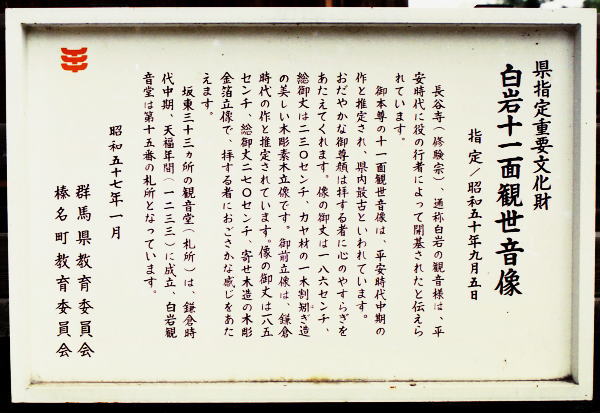 県指定重要文化財
白岩十一面観世音像
指定／昭和五十年九月五日
長谷寺（修験宗）、通称白岩の観音様は、平
安時代に役の行者によって開基されたと伝えら
れています。
御本尊の十一面観世音像は、平安時代中期の
作と推定され、県内最古といわれています。
おだやかな御尊顔は拝する者に心のやすらぎを
あたえてくれます。像の御丈は一八六センチ、
総御丈は二三〇センチ、カヤ材の一木割矧ぎ造
の美しい木彫素木立像です。御前立像は、鎌倉
時代の作と推定されています。像の御丈一八五
センチ、総御丈二七〇センチ、寄せ木造の木彫
金箔立像で、拝する者におごさかな感じをあた
えます。
坂東三十三ヵ所の観音堂（札所）は、鎌倉時
代中期、天福年間（一二三三）に成立、白岩観
音堂は第十五番の札所となっています。
昭和五十七年一月
群馬県教育委員会
榛名町教育委員会